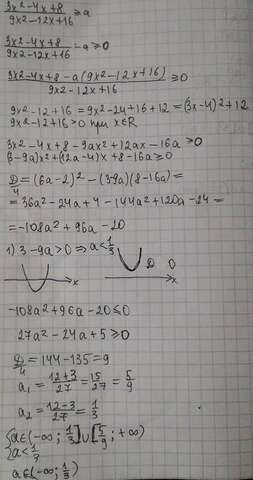 3x²-4x+8/9x²-12x+16 ≥ a
3x²-4x+8/9x²-12x+16 - a ≥ 0
3x²-4x+8-a(9x²-12x+16)/9x²-12x+16 ≥ 0
9x²-12+16 = 9x²-24+16+12 = (3x-4)²+12
9x²-12+16>0 при x∈R
3x²-4x+8-9ax²+12ax-16a ≥ 0
(3-9a)x²+(12a-4)x+8-16a ≥ 0
D/4 = (6a-2)²-(3-9a)(8-16a) =
= 36a²-24a+4-144a²+120a-24 =
= -108a²+96a-20
1) 3-9a>0 ⇒ a<1/3
x D 0 x
-108a²+96a-20 ≤ 0
27a²-24a+5 ≥ 0
D/4 = 144-135 = 9
a₁ = 12+3/27 = 15/27 = 5/9
a₂ = 12-3/27 = 1/3
{a∈(-∞; 1/3]∪[5/9; +∞)
a<1/3
a∈(-∞; 1/3)